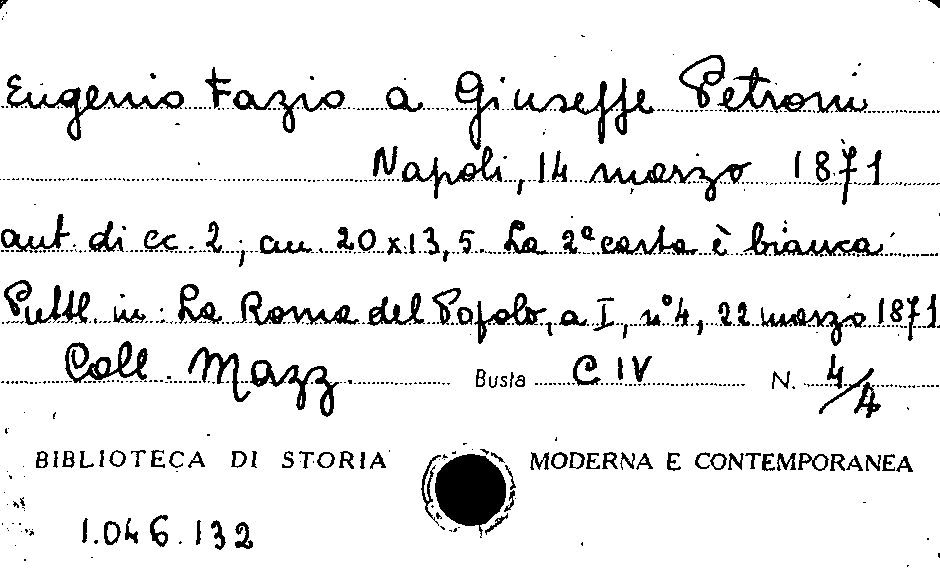 Eugenio Fazio a Giuseppe Petroni
Napoli, 14 marzo 1871
aut. di cc. 2; cm. 20x13,5. La 2ª carta è bianca.
Pubbl. in: La Roma del Popolo, a I, n°4, 22 marzo 1871
Coll. Mazz. Busta C IV N. 4/4
BIBLIOTECA DI STORIA MODERNA E CONTEMPORANEA
1.046.132